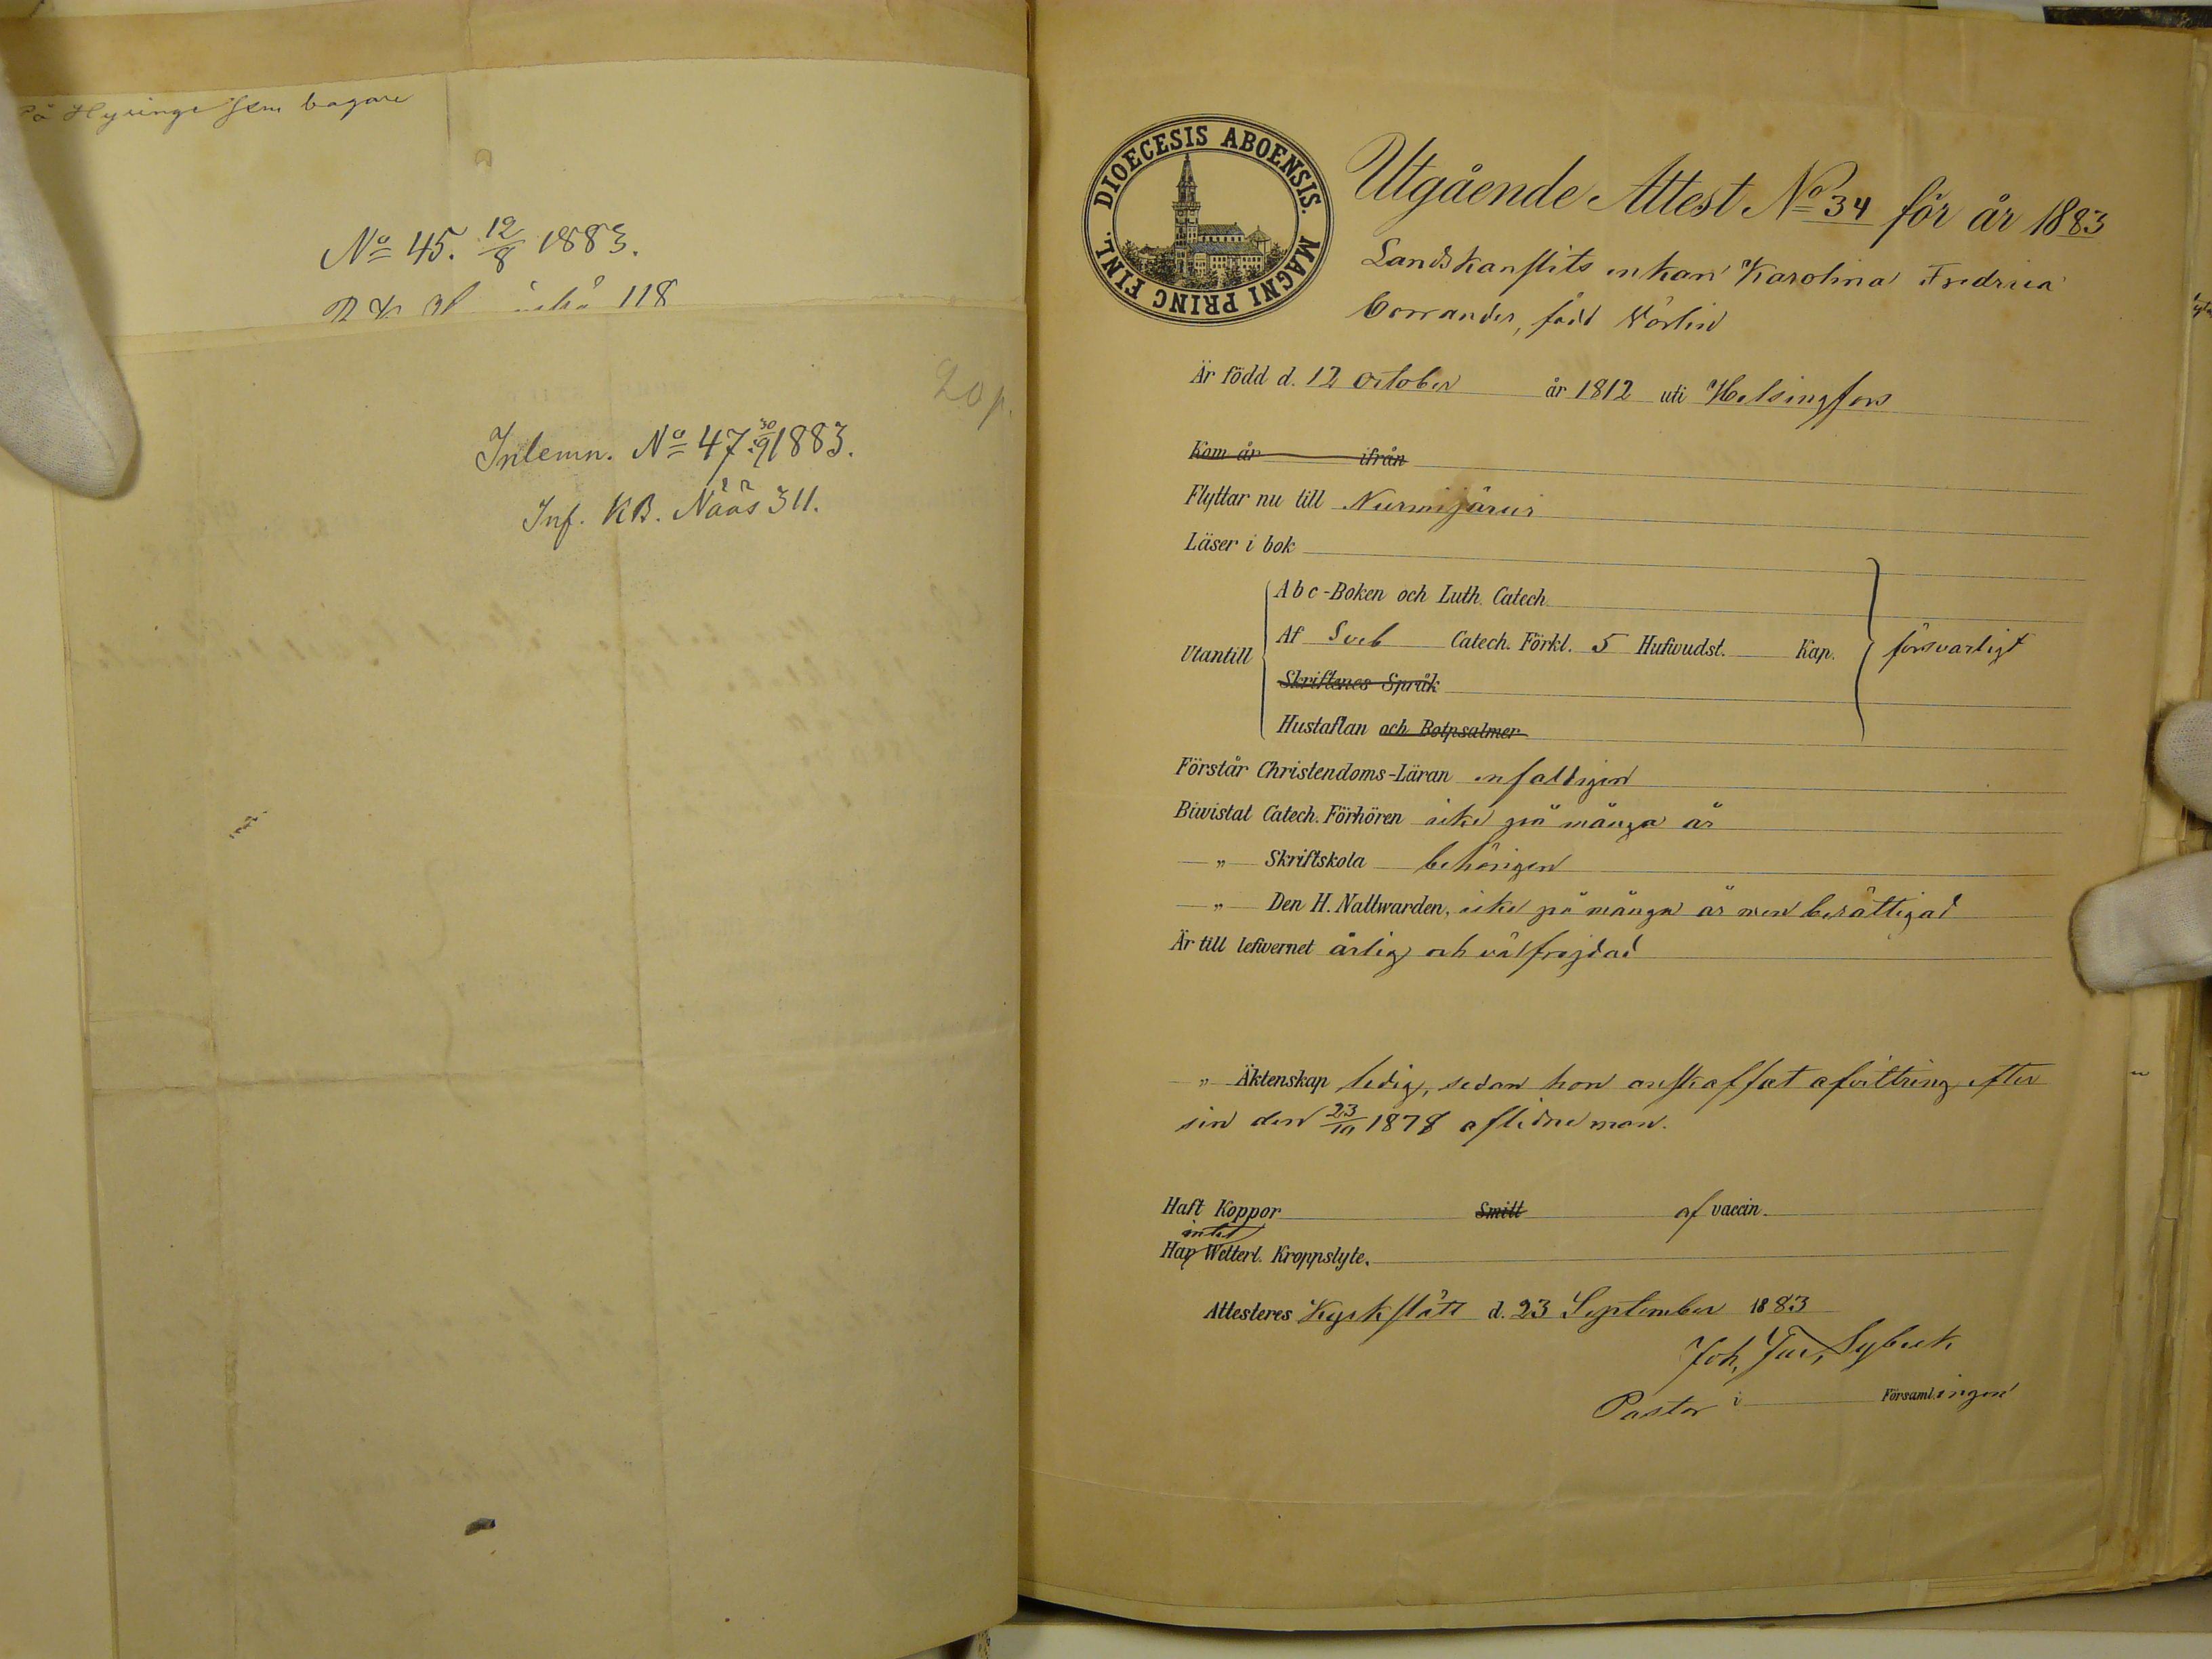 På Hyvinge som bagare
No 45. 12/8 1883.
118
20 p.
Inlemn. No 47. 30/9 1883.
Inf. KB. Nääs 311.
DIOECESIS ABOENSIS. MAGNI PRINC FINL.
Utgående Attest No 34 för år 1883
Landskanslits enkan Karolina Fredrica
Corander, född Nörlin
Är född d. 12 October år 1812 uti Helsingfors
Kom år ifrån
Flyttar nu till Nurmijärvi
Läser i bok
Abc-Boken och Luth. Catech.
Utantill Af Sveb Catech. Förkl. 5 Hufwudst. Kap. försvarligt
Skriftenes Språk
Hustaflan och Botpsalmer
Förstår Christendoms-Läran enfaldigen
Biwistat Catech. Förhören icke på många år
„ Skriftskola behörigen
„ Den H. Nattwarden, icke på många år men berättigad
Är till lefwernet ärlig och välfrejdad
„ Äktenskap ledig, sedan hon anskaffat afvittring efter
sin den 23/10 1878 aflidne man.
Haft Koppor Smitt af vaccin.
intet
Har Wetterl. Kroppslyte.
Attesteres Kyrkslätt d. 23 September 1883
Joh. Fur. Sybeck
Pastor i Församlingen